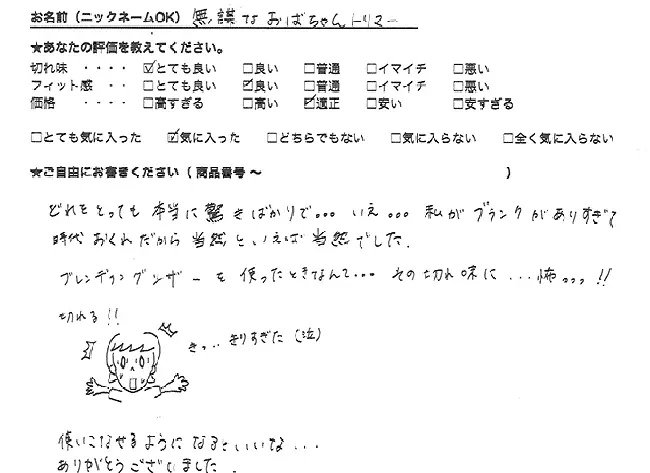 お名前（ニックネームOK） 無謀なおばちゃんトリマー
★あなたの評価を教えてください。
切れ味 ・・・・ ☑とても良い □良い □普通 □イマイチ □悪い
フィット感 ・・ □とても良い ☑良い □普通 □イマイチ □悪い
価格 ・・・・ □高すぎる □高い ☑適正 □安い □安すぎる
□とても気に入った ☑気に入った □どちらでもない □気に入らない □全く気に入らない
★ご自由にお書きください（商品番号～ ）
どれをとっても本当に驚きばかりで・・・いえ・・・私がブランクがありすぎて
時代おくれだから当然といえば当然でした.
ブレンディングシザーを使ったときなんて・・・その切れ味に・・・怖っっっ!!
切れる!!
きっ・・きりすぎた（泣）
使いこなせるようになるといいな・・・
ありがとうございました.